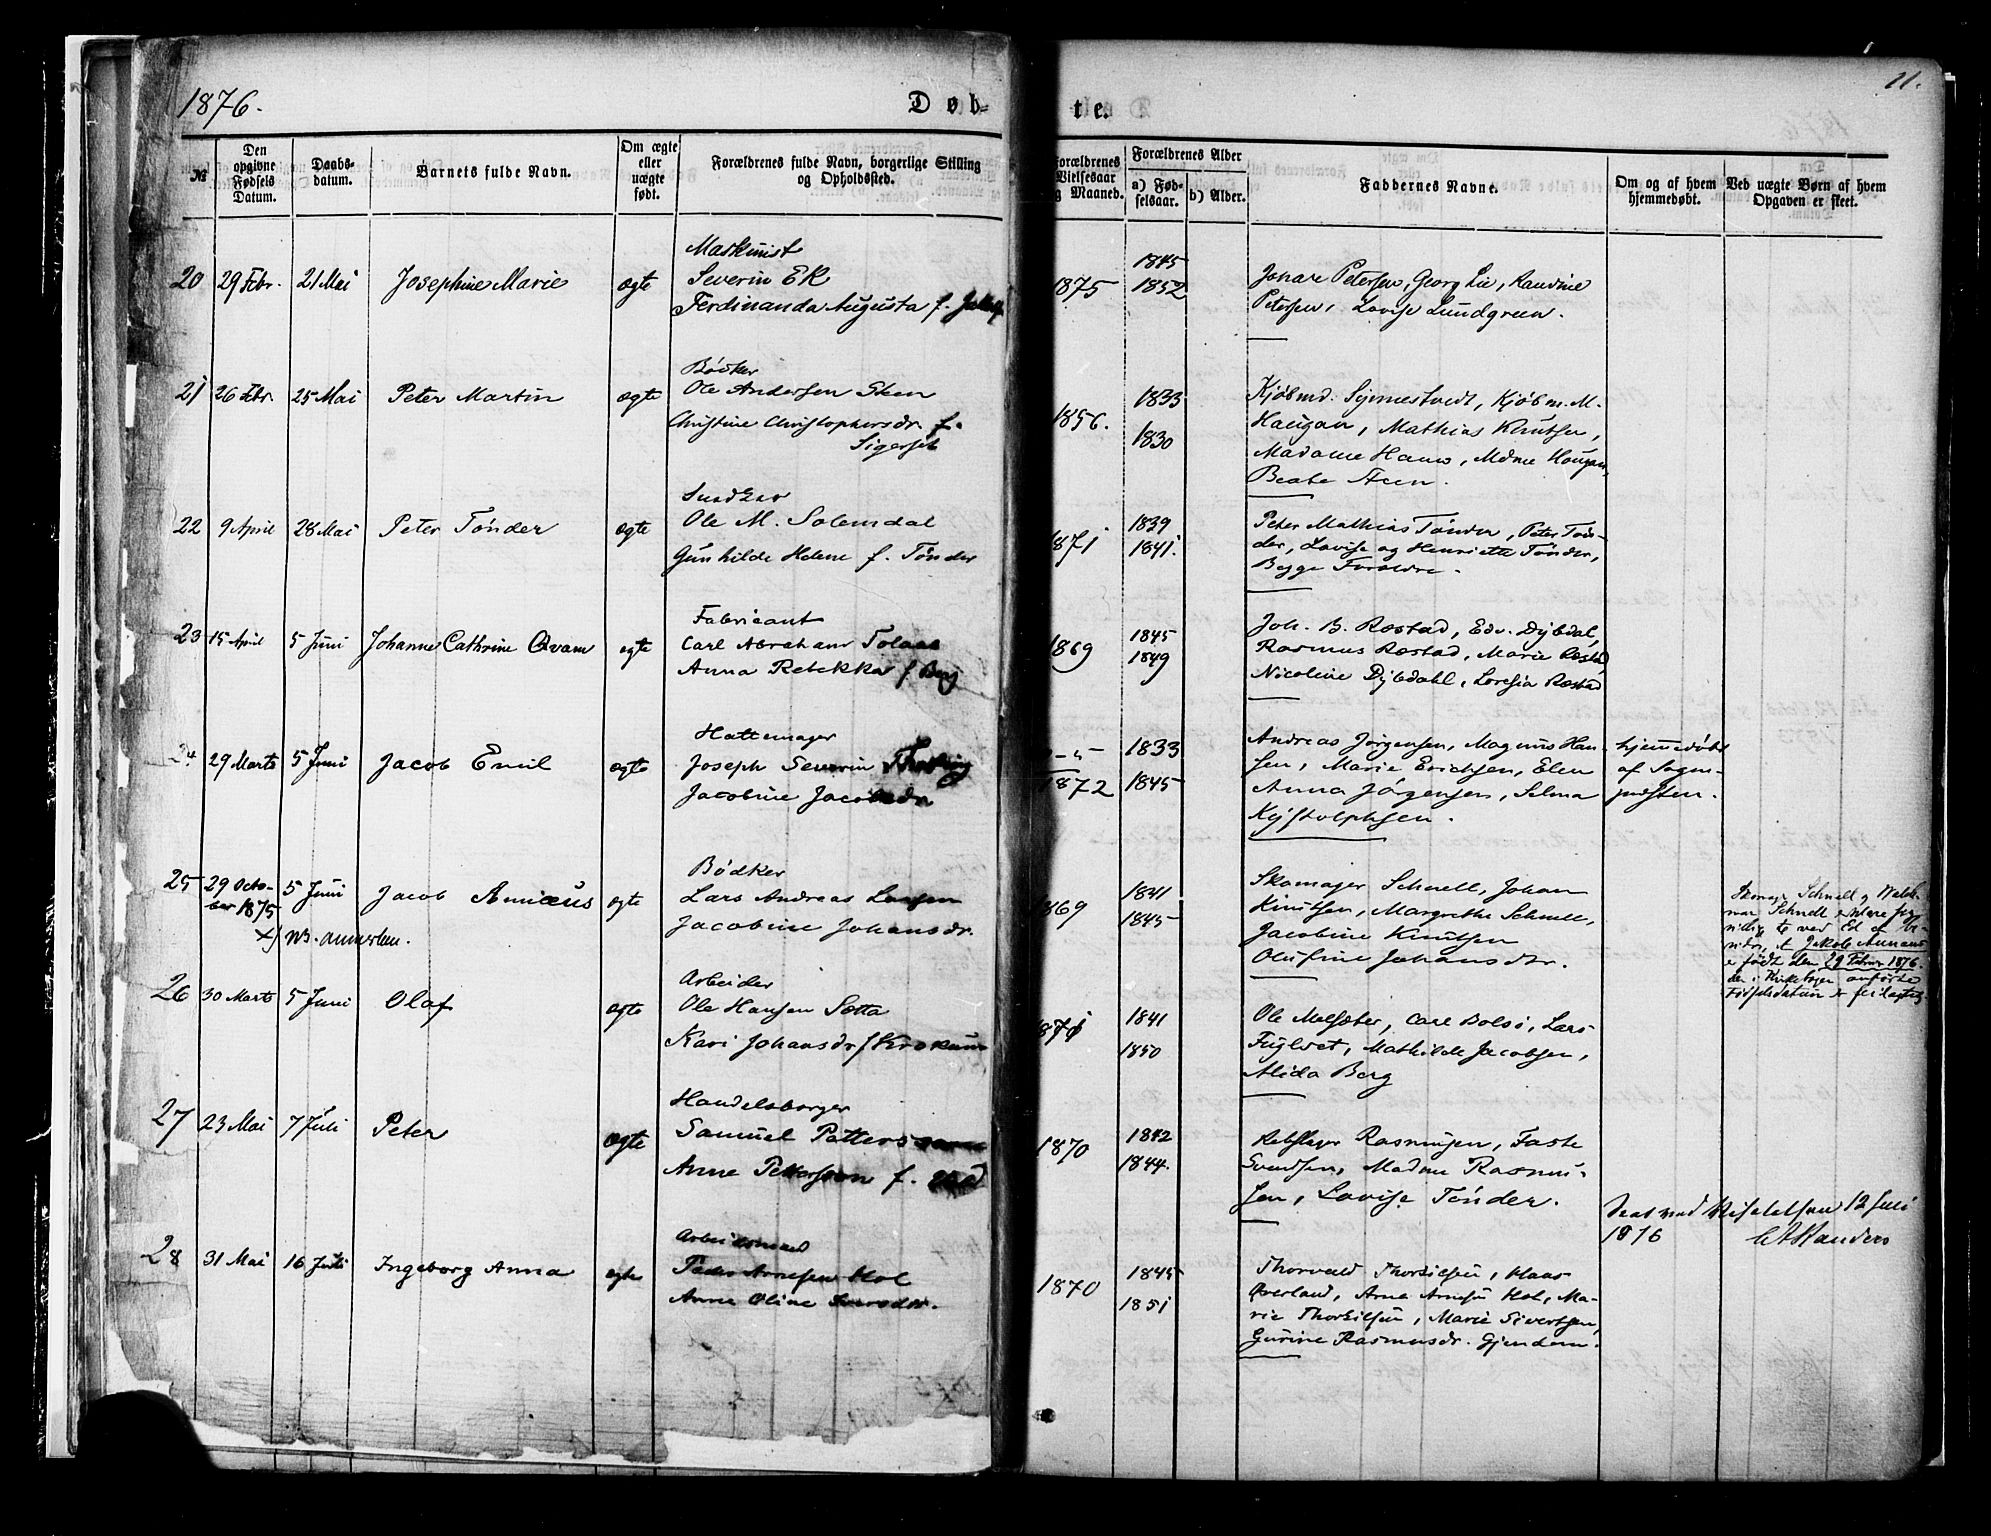 1876.
Døb-
te.
11.
№
Den opgivne Fødsels Datum.
Daabs-datum.
Barnets fulde Navn.
Om ægte eller uægte født.
Forældrenes fulde Navn, borgerlige Stilling og Opholdssted.
Forældrenes Vielsesaar og Maaned.
Forældrenes Alder
a) Fødselsaar.
b) Alder.
Faddernes Navne.
Om og af hvem hjemmedøbt.
Ved uægte Børn af hvem Opgaven er skeet.
20 29 Febr. 21 Mai Josephine Marie ægte
Maskinist
Severin Ek
Ferdinanda Augusta f.
1875
1845
1852
Petersen, Georg Lie, Randine
Petersen, Lovise Lundgreen.
21 26 Febr. 25 Mai Peter Martin ægte
Bødker
Ole Andersen Steen
Christine Christophersdr. f.
1856.
1833
1830
Kjøbmd. Synnestvedt, Kjøbm. M.
Haugan, Mathias Knutsen,
Madame Hans, Mdme Haugan,
Beate Steen.
22 9 April 28 Mai Peter Tønder ægte
Ole M. Solemdal
Gunhilde Helene f. Tønder
1871
1839
1841.
Peter Mathias Tønder, Peter Tøn-
der, Lovise og Henriette Tønder,
Begge Forældre.
23 15 April 5 Juni Johanne Cathrine Qvam egte
Fabricant
Carl Abraham Tolaas
Anna Rebekka f Berg
1869
1845
1849
Joh. B. Røstad, Edv. Dybdal,
Rasmus Røstad, Marie Røstad
Nicoline Dybdahl, Lovesia Røstad
24 29 Marts 5 Juni Jacob Emil ægte
Hattemager
Joseph Severin
Jacobine Jacobsdr
1872
1833
1845
Andreas Jørgensen, Magnus Han-
sen, Marie Erichsen, Elen
Anna Jørgensen, Selma
Kystolphsen.
hjemmedøbt
af Sogne-
præsten.
25 29 Octo-
ber 1875 5 Juni Jacob Amicus ægte
x)
Bødker
Lars Andreas Larsen
Jacobine Johansdr.
1869
1841
1845
Skomager Schnell, Johan
Knutsen, Margrethe Schnell,
Jacobine Knutsen
Olufine Johansdtr.
Schnell og
Schnell
ved Ed at
er født den 29 Februar 1876.
den i Kirkebogen anførte
Fødselsdatum er feilagtig
26 30 Marts 5 Juni Olaf ægte
Arbeider
Ole Hansen Sætta
Kari Johansdr f
1871
1841
1850
Ole Melsæter, Carl Bolsø, Lars
Fuglset, Mathilde Jacobsen,
Alida Berg
27 23 Mai 7 Juli Peter ægte
Handelsborger
Samuel Pettersson
Anne Pettersson f.
1870
1842
1844.
Rebslager Rasmussen, Faste
Svendsen, Madme Rasmus-
sen, Lovise Tønder.
12 Juli
1876
28 31 Mai 16 Juli Ingeborg Anna egte
Arbeidsmand
Peder Arnesen Hol
Anne Oline
1870
1845
1851
Thorvald Thorkilsen, Hans
Øverland, Arne Arnesen Hol, Ma-
rie Thorkilsen, Marie Sivertsen,
Gurine Rasmusdr. Gjendem.